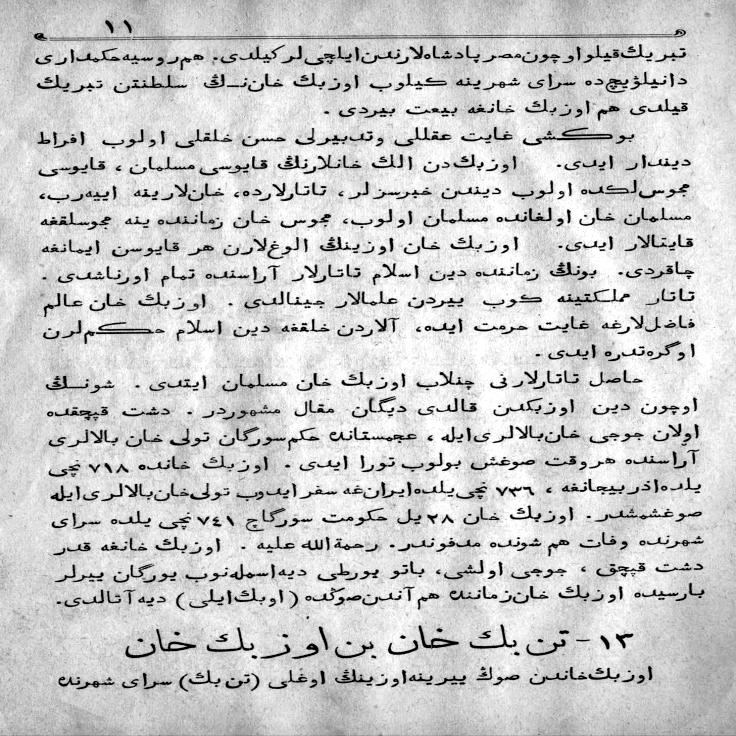 ١١
تبريك قيلو اوچون مصر پادشاه لارندن ايلچى لر كيلدى. هم روسيه حكمدارى
دانيلۋيچ ده سراى شهرينه كيلوب اوزبك خان نـڭ سلطنتن تبريك
قيلدى هم اوزبك خانغه بيعت بيردى .
بو كشى غايت عقللى وتدبيرلى حسن خلقلى اولوب افراط
ديندار ايدى. اوزبك دن الك خانلارنڭ قايوسى مسلمان ، قايوسى
مجوس لكده اولوب ديندن خبرسز لر، تاتارلارده، خان لارينه ايیه رب،
مسلمان خان اولغانده مسلمان اولوب، مجوس خان زماننده ينه مجوسلقغه
قايتالار ايدى. اوزبك خان اوزينڭ الوغ لارن هر قايوسن ايمانغه
چاقردى. بونڭ زماننده دين اسلام تاتارلار آراسنده تمام اورناشدى .
تاتار مملكتينه كوب ييردن علمالار جينالدى . اوزبك خان عالم
فاضل لارغه غايت حرمت ايده، آلاردن خلقغه دين اسلام حكم لرن
اوگره تدره ايدى .
حاصل تاتارلار نى چنلاب اوزبك خان مسلمان ايتدى . شونـڭ
اوچون دين اوزبكدن قالدى ديگان مقال مشهوردر . دشت قپچقده
اولان جوجى خان بالالرى ايله ، عجمستانده حكم سورگان تولى خان بالالرى
آراسنده هر وقت صوغش بولوب تورا ايدى . اوزبك خانده ٧١٨ نچى
يلده اذربيجانغه ، ٧٣٦ نچى يلده ايران غه سفر ايدوب تولى خان بالالرى ايله
صوغشمشدر. اوزبك خان ٢٨ يل حكومت سورگاچ ٧٤١ نچى يلده سراى
شهرنده وفات هم شونده مدفوندر. رحمة الله عليه . اوزبك خانغه قدر
دشت قپچق ، جوجى اولشى، باتو يورطى ديه اسمله نوب يورگان ييرلر
بارسيده اوزبك خان زماننده هم آندن صوڭده (اوبك ايلى) ديه آتالدى.
١٣- تن بك خان بن اوزبك خان
اوزبك خاندن صوڭ ييرينه اوزينڭ اوغلى (تن بك) سراى شهرنده